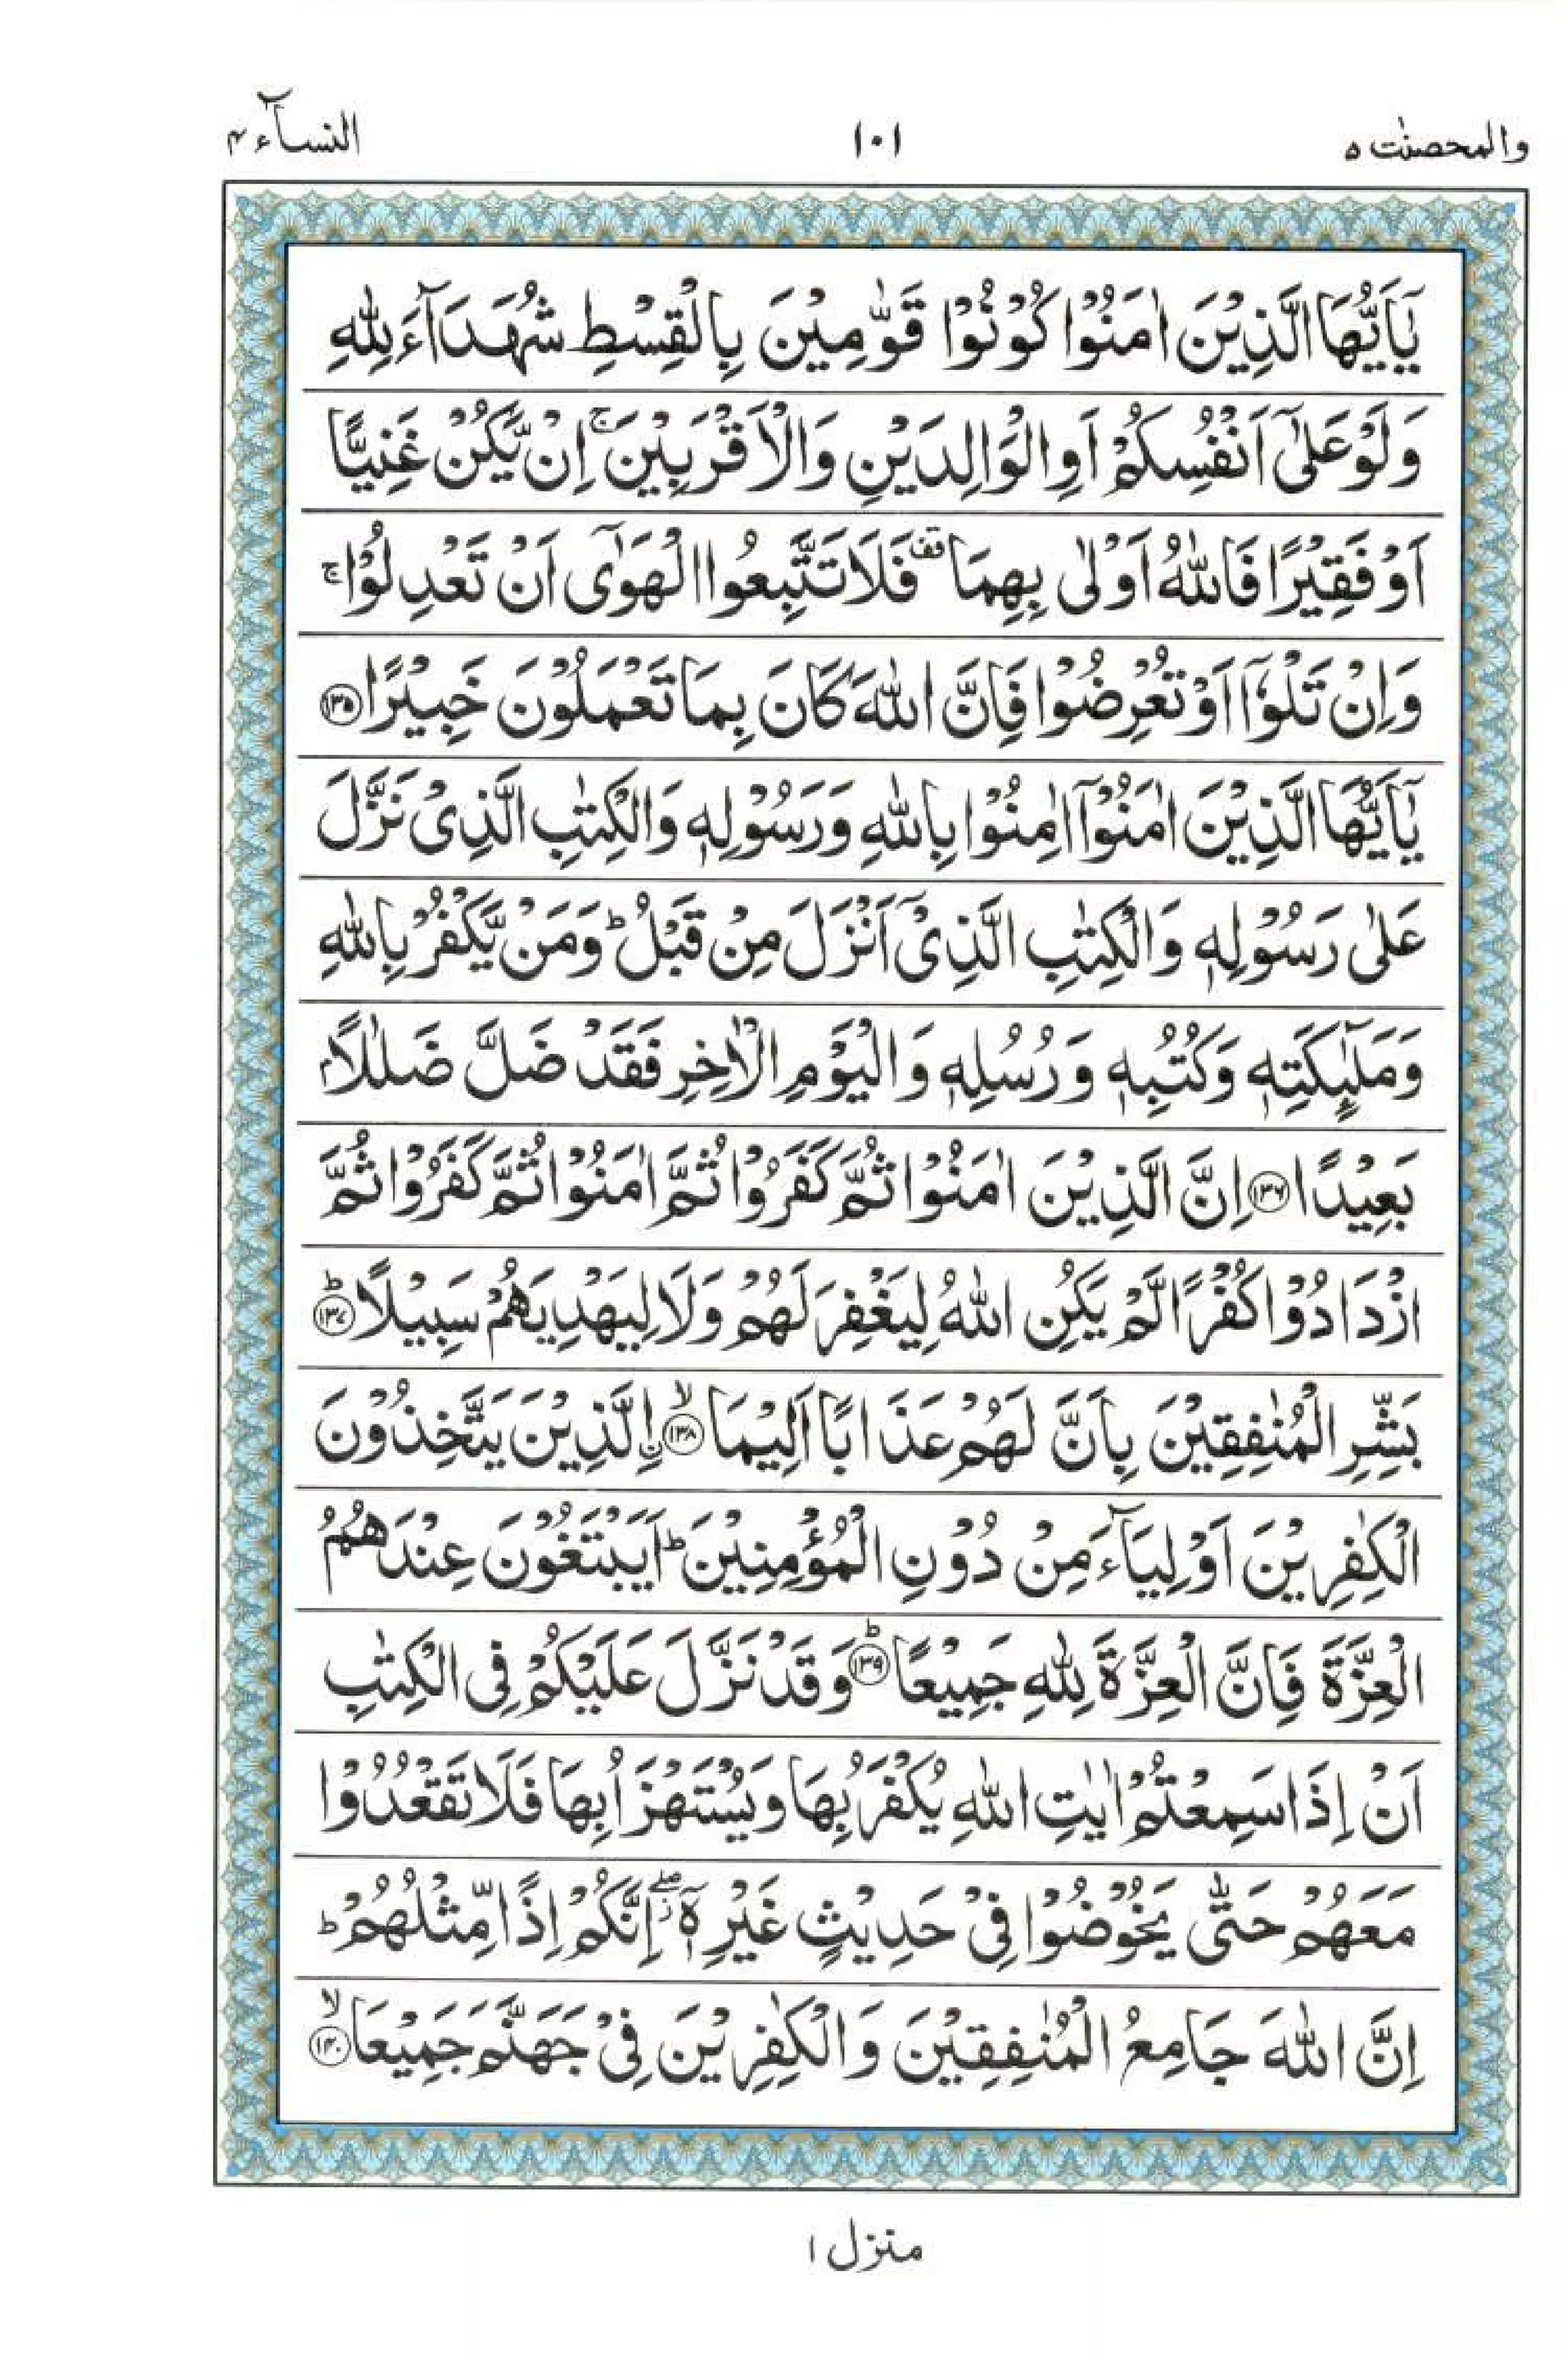 والمحصنٰت ٥
١٠١
النسآء ٤
يٰٓاَيُّهَا الَّذِيْنَ اٰمَنُوْا كُوْنُوْا قَوّٰمِيْنَ بِالْقِسْطِ شُهَدَآءَ لِلّٰهِ
وَلَوْ عَلٰٓى اَنْفُسِكُمْ اَوِ الْوَالِدَيْنِ وَالْاَقْرَبِيْنَ ۚ اِنْ يَّكُنْ غَنِيًّا
اَوْ فَقِيْرًا فَاللّٰهُ اَوْلٰى بِهِمَا قف فَلَا تَتَّبِعُوا الْهَوٰٓى اَنْ تَعْدِلُوْا ۚ
وَاِنْ تَلْوٗٓا اَوْ تُعْرِضُوْا فَاِنَّ اللّٰهَ كَانَ بِمَا تَعْمَلُوْنَ خَبِيْرًا ﴿١٣٥﴾
يٰٓاَيُّهَا الَّذِيْنَ اٰمَنُوْٓا اٰمِنُوْا بِاللّٰهِ وَرَسُوْلِهٖ وَالْكِتٰبِ الَّذِىْ نَزَّلَ
عَلٰى رَسُوْلِهٖ وَالْكِتٰبِ الَّذِىْٓ اَنْزَلَ مِنْ قَبْلُ ؕ وَمَنْ يَّكْفُرْ بِاللّٰهِ
وَمَلٰٓئِكَتِهٖ وَكُتُبِهٖ وَرُسُلِهٖ وَالْيَوْمِ الْاٰخِرِ فَقَدْ ضَلَّ ضَلٰلًاۢ
بَعِيْدًا ﴿١٣٦﴾ اِنَّ الَّذِيْنَ اٰمَنُوْا ثُمَّ كَفَرُوْا ثُمَّ اٰمَنُوْا ثُمَّ كَفَرُوْا ثُمَّ
ازْدَادُوْا كُفْرًا لَّمْ يَكُنِ اللّٰهُ لِيَغْفِرَ لَهُمْ وَلَا لِيَهْدِيَهُمْ سَبِيْلًا ؕ﴿١٣٧﴾
بَشِّرِ الْمُنٰفِقِيْنَ بِاَنَّ لَهُمْ عَذَابًا اَلِيْمَا ۙ﴿١٣٨﴾ ۨالَّذِيْنَ يَتَّخِذُوْنَ
الْكٰفِرِيْنَ اَوْلِيَآءَ مِنْ دُوْنِ الْمُؤْمِنِيْنَ ؕ اَيَبْتَغُوْنَ عِنْدَهُمُ
الْعِزَّةَ فَاِنَّ الْعِزَّةَ لِلّٰهِ جَمِيْعًا ؕ﴿١٣٩﴾ وَقَدْ نَزَّلَ عَلَيْكُمْ فِى الْكِتٰبِ
اَنْ اِذَا سَمِعْتُمْ اٰيٰتِ اللّٰهِ يُكْفَرُ بِهَا وَيُسْتَهْزَاُ بِهَا فَلَا تَقْعُدُوْا
مَعَهُمْ حَتّٰى يَخُوْضُوْا فِىْ حَدِيْثٍ غَيْرِهٖٓ ۖ ز اِنَّكُمْ اِذًا مِّثْلُهُمْ ؕ
اِنَّ اللّٰهَ جَامِعُ الْمُنٰفِقِيْنَ وَالْكٰفِرِيْنَ فِىْ جَهَنَّمَ جَمِيْعَا ۙ﴿١٤٠﴾
منزل ١